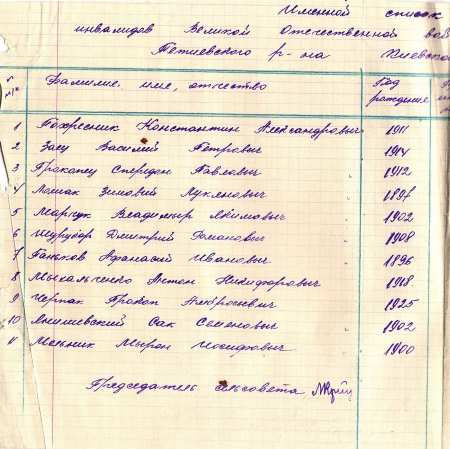 Именной список
инвалидов Великой Отечественной вой
Тетиевского р-на Киевско
№ п/п Фамилие, имя, отчество Год рождение
1 Константин Александровыч 1911
2 Заец Василий Петровыч 1914
3 Прокопец Спиридон Павловыч 1912
4 Ломак Зиновий Лукяновыч 1897
5 Марчук Владимир Якимовыч 1902
6 Шурубор Дмитрий Романовыч 1908
7 Ганьков Афанасий Ивановыч 1896
8 Мыхальченко Антон Никифоровыч 1918
9 Черпак Прокоп Амвросиевич 1925
10 Янишевский Сак Семеновыч 1902
11 Мельник Мырон Иосифовыч 1900
Председатель сельсовета